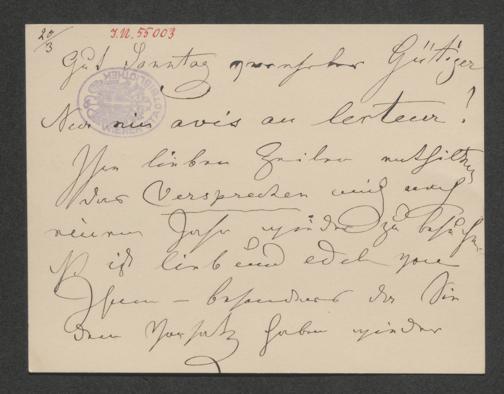 29/3
J.N. 55003
Gut Sonntag verehrter Gütiger
Nur ein avis au lecteur!
Ihre lieben Zeilen enthalten
das Versprechen mich nach
einem Jahr wieder zu besuchen
Es ist lieb und edel von
Ihnen – besonders da Sie
den Vorsatz haben wieder